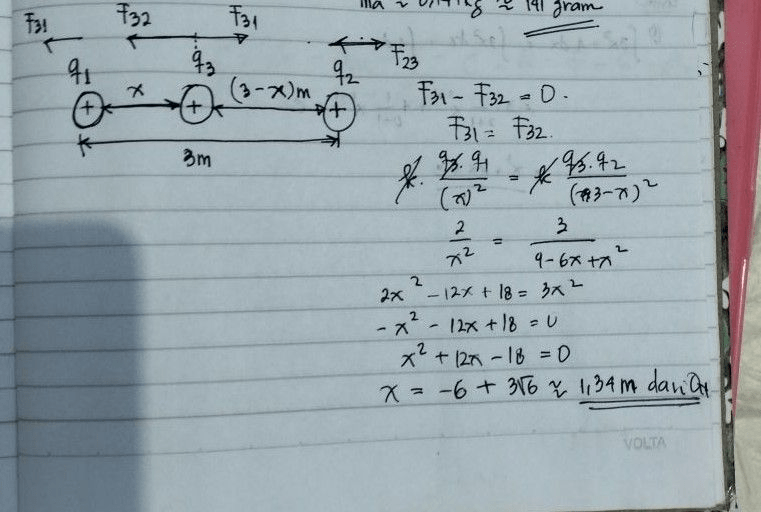 ma ≈ 0,141 kg ≈ 141 gram
F31 F32 F31 F23
q1 q3 q2
+ x + (3-x)m +
3m
F31 - F32 = 0.
F31 = F32.
k. q3. q1 / (x)² = k q3. q2 / (3-x)²
2 / x² = 3 / 9-6x+x²
2x² - 12x + 18 = 3x²
-x² - 12x + 18 = 0
x² + 12x - 18 = 0
x = -6 + 3√6 ≈ 1,34 m dari Q1
VOLTA